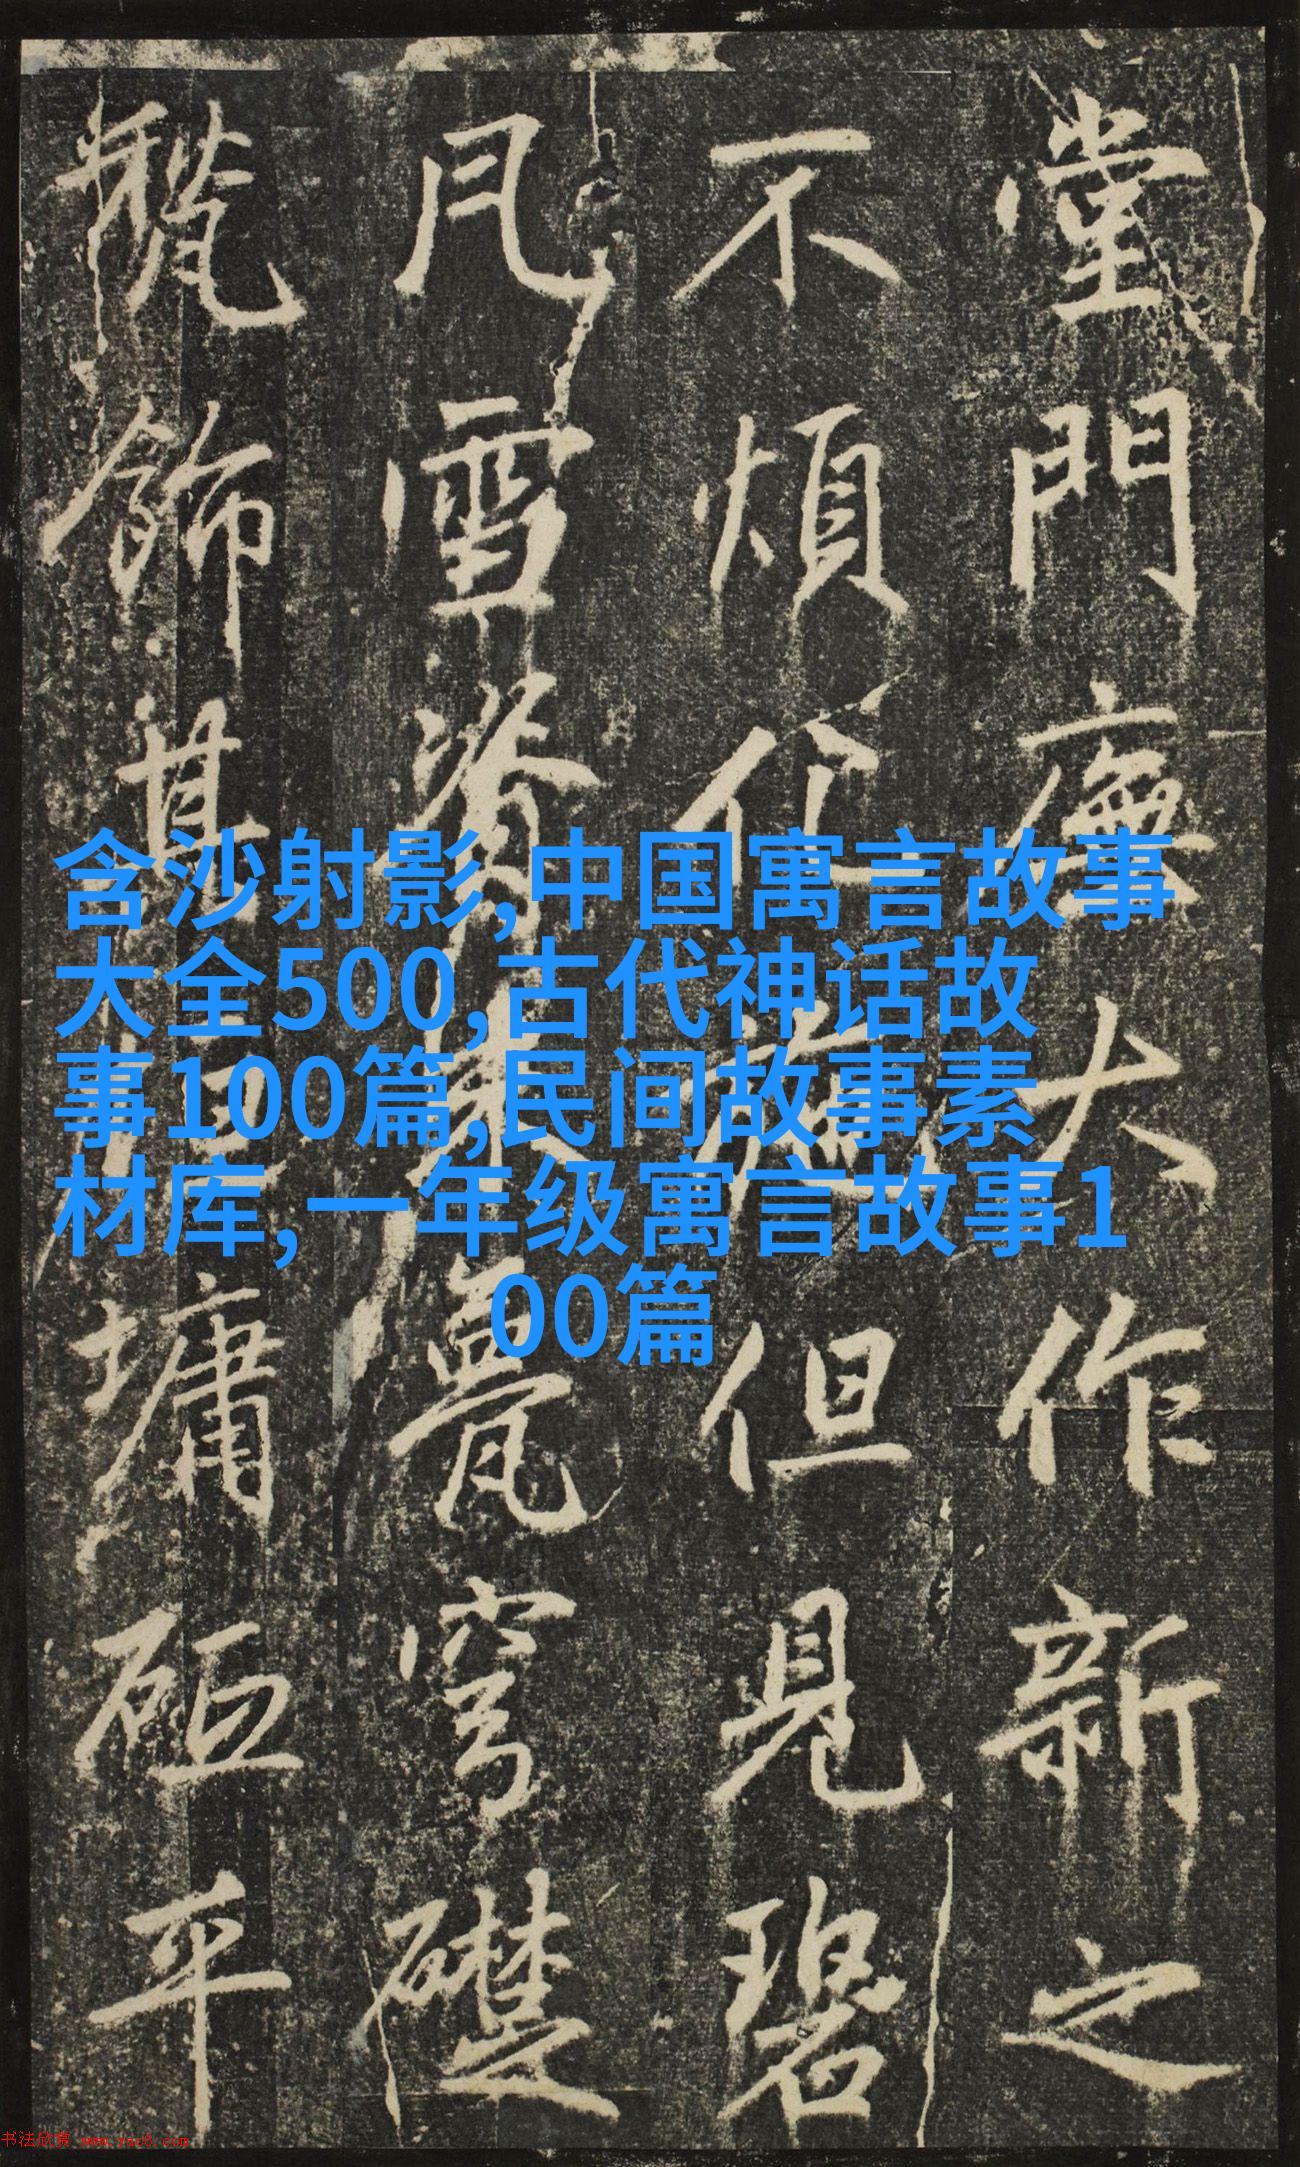 堂門廡大作新之
不煩任
但見碧
凡雪資
甍穹礎
甃飾其
墉砠平
含沙射影,中国寓言故事
大全500,古代神话故
事100篇,民间故事素
材库,一年级寓言故事1
00篇
书法欣赏 www.yac8.com